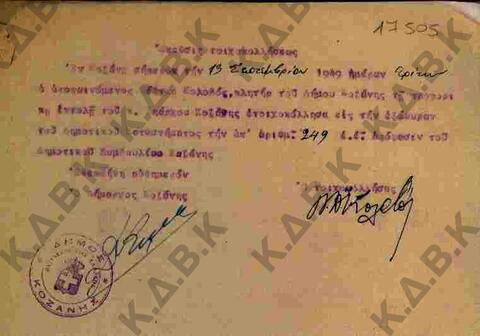 17505
Ἔκθεσις τοιχοκολλήσεως
Ἐν Κοζάνῃ σήμερον τήν 13 Σεπτεμβρίου 1949 ἡμέραν Τρίτην
ὁ ὑποφαινόμενος Κολοβός, κλητήρ τοῦ Δήμου Κοζάνης τῇ
ἐντολῇ τοῦ κ. Δημάρχου Κοζάνης ἐτοιχοκόλλησα εἰς τήν ἐξώθυραν
τοῦ Δημοτικοῦ Καταστήματος τήν ὑπ' ἀριθμ. 249 ἀπόφασιν τοῦ
Δημοτικοῦ Συμβουλίου Κοζάνης
αὐθημερόν
Ὁ Δήμαρχος Κοζάνης
Ὁ τοιχοκολλήσας
ΔΗΜΟΣ
ΚΟΖΑΝΗΣ
Κ.Δ.Β.Κ